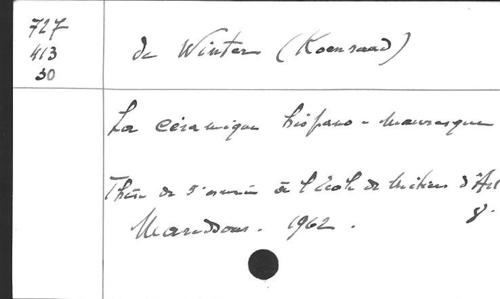 727
413
30
de Winter (Koenraad)
La céramique hispano-mauresque
Thèse de 5e année à l'école de Métiers d'Art
Maredsous. 1962. 8°